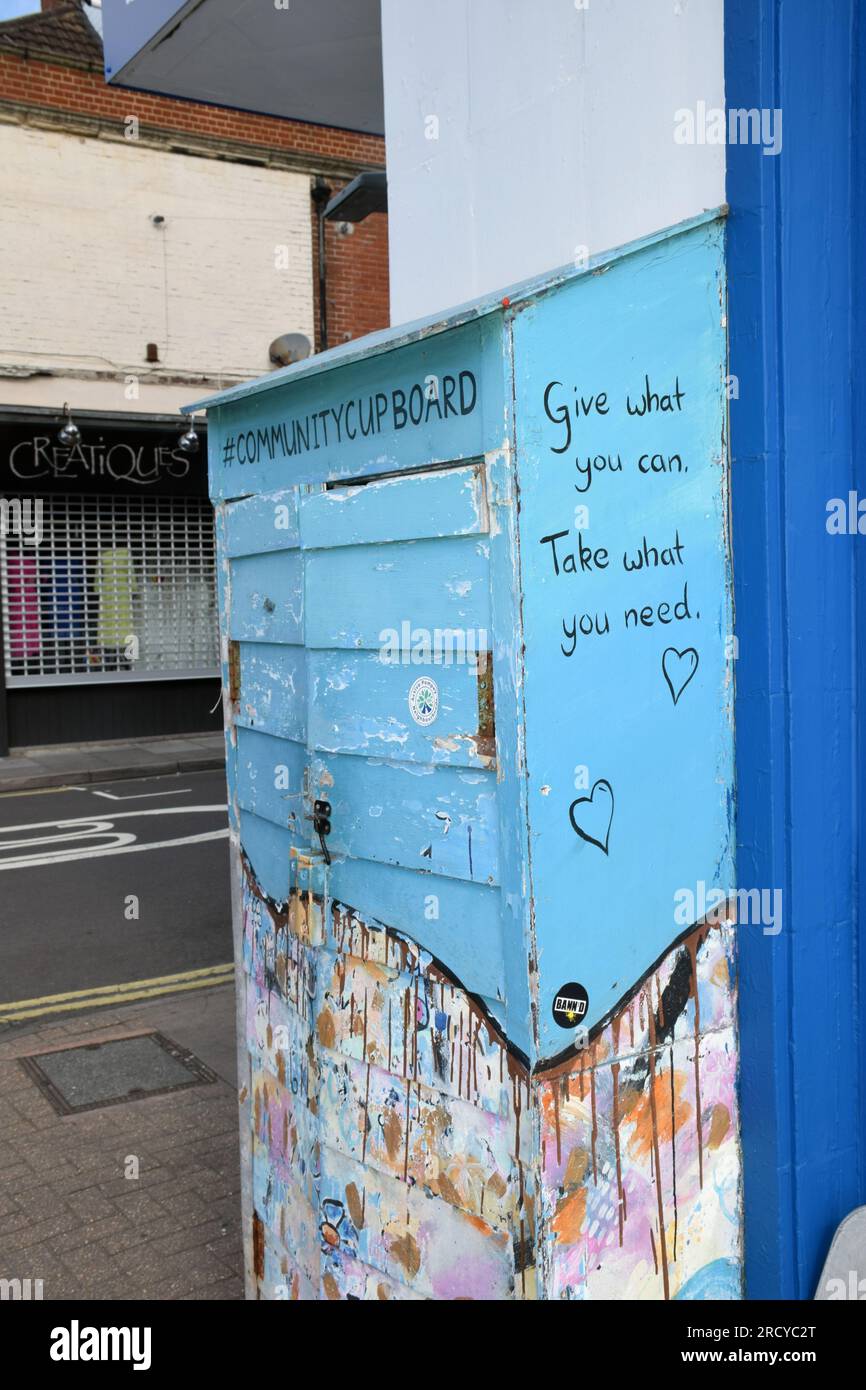 CREATIQUES
#COMMUNITYCUPBOARD
Give what
you can.
Take what
you need.
BANN'D
alamy
Image ID: 2RCYC2T
www.alamy.com